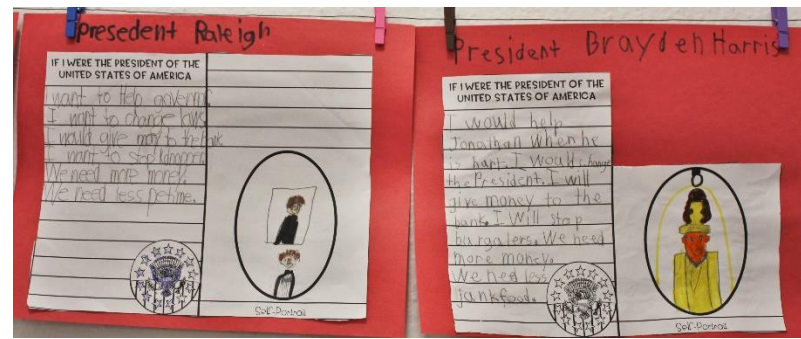 Presedent Raleigh
IF I WERE THE PRESIDENT OF THE
UNITED STATES OF AMERICA
I want to Help governor
I want to change laws
I would give mony to the
I want to stop
We need more money.
We need less
Self-Portrait
President Brayden Harris
IF I WERE THE PRESIDENT OF THE
UNITED STATES OF AMERICA
I would help
Jonathan when he
is hart. I would change
the President. I will
give money to the
bank. I Will stop
burgalers. We need
more money.
We need less
jankfood.
Self-Portrait